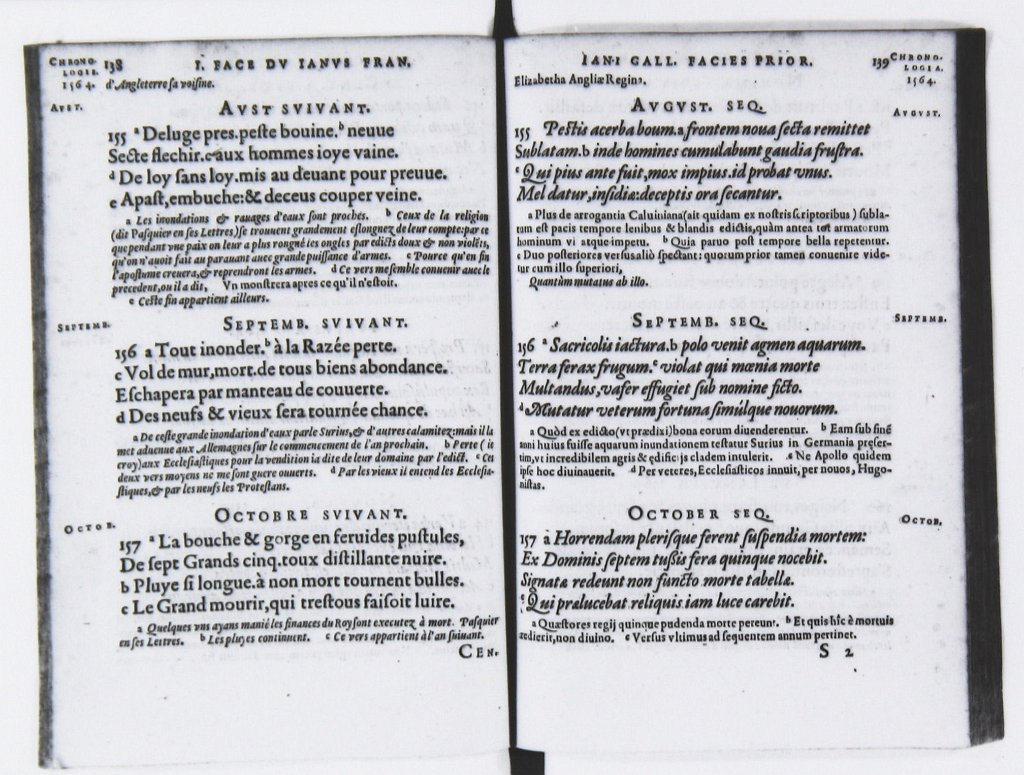 CHRONO-
LOGIE.
1564.
138
I. FACE DV IANVS FRAN.
d'Angleterre sa voisine.
AVST.
AVST SVIVANT.
155 a Deluge pres. peste bouine. b neuue
Secte flechir. c aux hommes ioye vaine.
d De loy sans loy. mis au deuant pour preuue.
e Apast, embuche: & deceus couper veine.
a Les inondations & rauages d'eaux sont proches. b Ceux de la religion
(dit Pasquier en ses Lettres) se trouuent grandement eslongnez de leur compte: par ce
que pendant vne paix on leur a plus rongné les ongles par edicts doux & non violēts,
qu'on n'auoit fait au parauant auec grande puissance d'armes. c Pource qu'en fin
l'apostume creuera, & reprendront les armes. d Ce vers me semble conuenir auec le
precedent, ou il a dit, Vn monstrera apres ce qu'il n'estoir.
e Ceste fin appartient ailleurs.
SEPTEMB.
SEPTEMB. SVIVANT.
156 a Tout inonder. b à la Razée perte.
c Vol de mur, mort. de tous biens abondance.
Eschapera par manteau de couuerte.
d Des neufs & vieux sera tournée chance.
a De ceste grande inondation d'eaux parle Surius, & d'autres calamitez: mais il la
met aduenue aux Allemagnes sur le commencement de l'an prochain. b Perte ( ie
croy) aux Ecclesiastiques pour la vendition ia dite de leur domaine par l'edict. c Ces
deux vers moyens ne me sont guere ouuerts. d Par les vieux il entend les Ecclesia-
stiques, & par les neufs les Protestans.
OCTOB.
OCTOBRE SVIVANT.
157 a La bouche & gorge en feruides pustules,
De sept Grands cinq. toux distillante nuire.
b Pluye si longue. à non mort tournent bulles.
c Le Grand mourir, qui trestous faisoit luire.
a Quelques vns ayans manié les finances du Roy sont executez à mort. Pasquier
en ses Lettres. b Les pluyes continuent. c Ce vers appartient à l'an suiuant.
CEN-
IANI GALL. FACIES PRIOR.
139
CHRONO-
LOGIA.
1564.
Elizabetha Angliæ Regina.
AVGVST.
AVGVST. SEQ.
155 Pestis acerba boum. a frontem noua secta remittet
Sublatam. b inde homines cumulabunt gaudia frustra.
c Qui pius ante fuit, mox impius. id probat vnus.
Mel datur, insidiæ: deceptis ora secantur.
a Plus de arrogantia Caluiniana (ait quidam ex nostris scriptoribus) subla-
tum est pacis tempore lenibus & blandis edictis, quàm antea tot armatorum
hominum vi atque impetu. b Quia paruo post tempore bella repetentur.
c Duo posteriores versus aliò spectant: quorum prior tamen conuenire vide-
tur cum illo superiori,
Quantùm mutatus ab illo.
SEPTEMB.
SEPTEMB. SEQ.
156 a Sacricolis iactura. b polo venit agmen aquarum.
Terra ferax frugum. c violat qui mœnia morte
Multandus, vafer effugiet sub nomine ficto.
d Mutatur veterum fortuna simúlque nouorum.
a Quòd ex edicto (vt prædixi) bona eorum diuenderentur. b Eam sub finē
anni huius fuisse aquarum inundationem testatur Surius in Germania præser-
tim, vt incredibilem agris & ędificijs cladem intulerit. c Ne Apollo quidem
ipse hoc diuinauerit. d Per veteres, Ecclesiasticos innuit, per nouos, Hugo-
nistas.
OCTOB.
OCTOBER SEQ.
157 a Horrendam plerisque ferent suspendia mortem:
Ex Dominis septem tussis fera quinque nocebit.
Signatæ redeunt non functo morte tabellæ.
c Qui prælucebat reliquis iam luce carebit.
a Quæstores regij quinque pudenda morte pereunt. b Et quis hîc è mortuis
redierit, non diuino. c Versus vltimus ad sequentem annum pertinet.
S 2